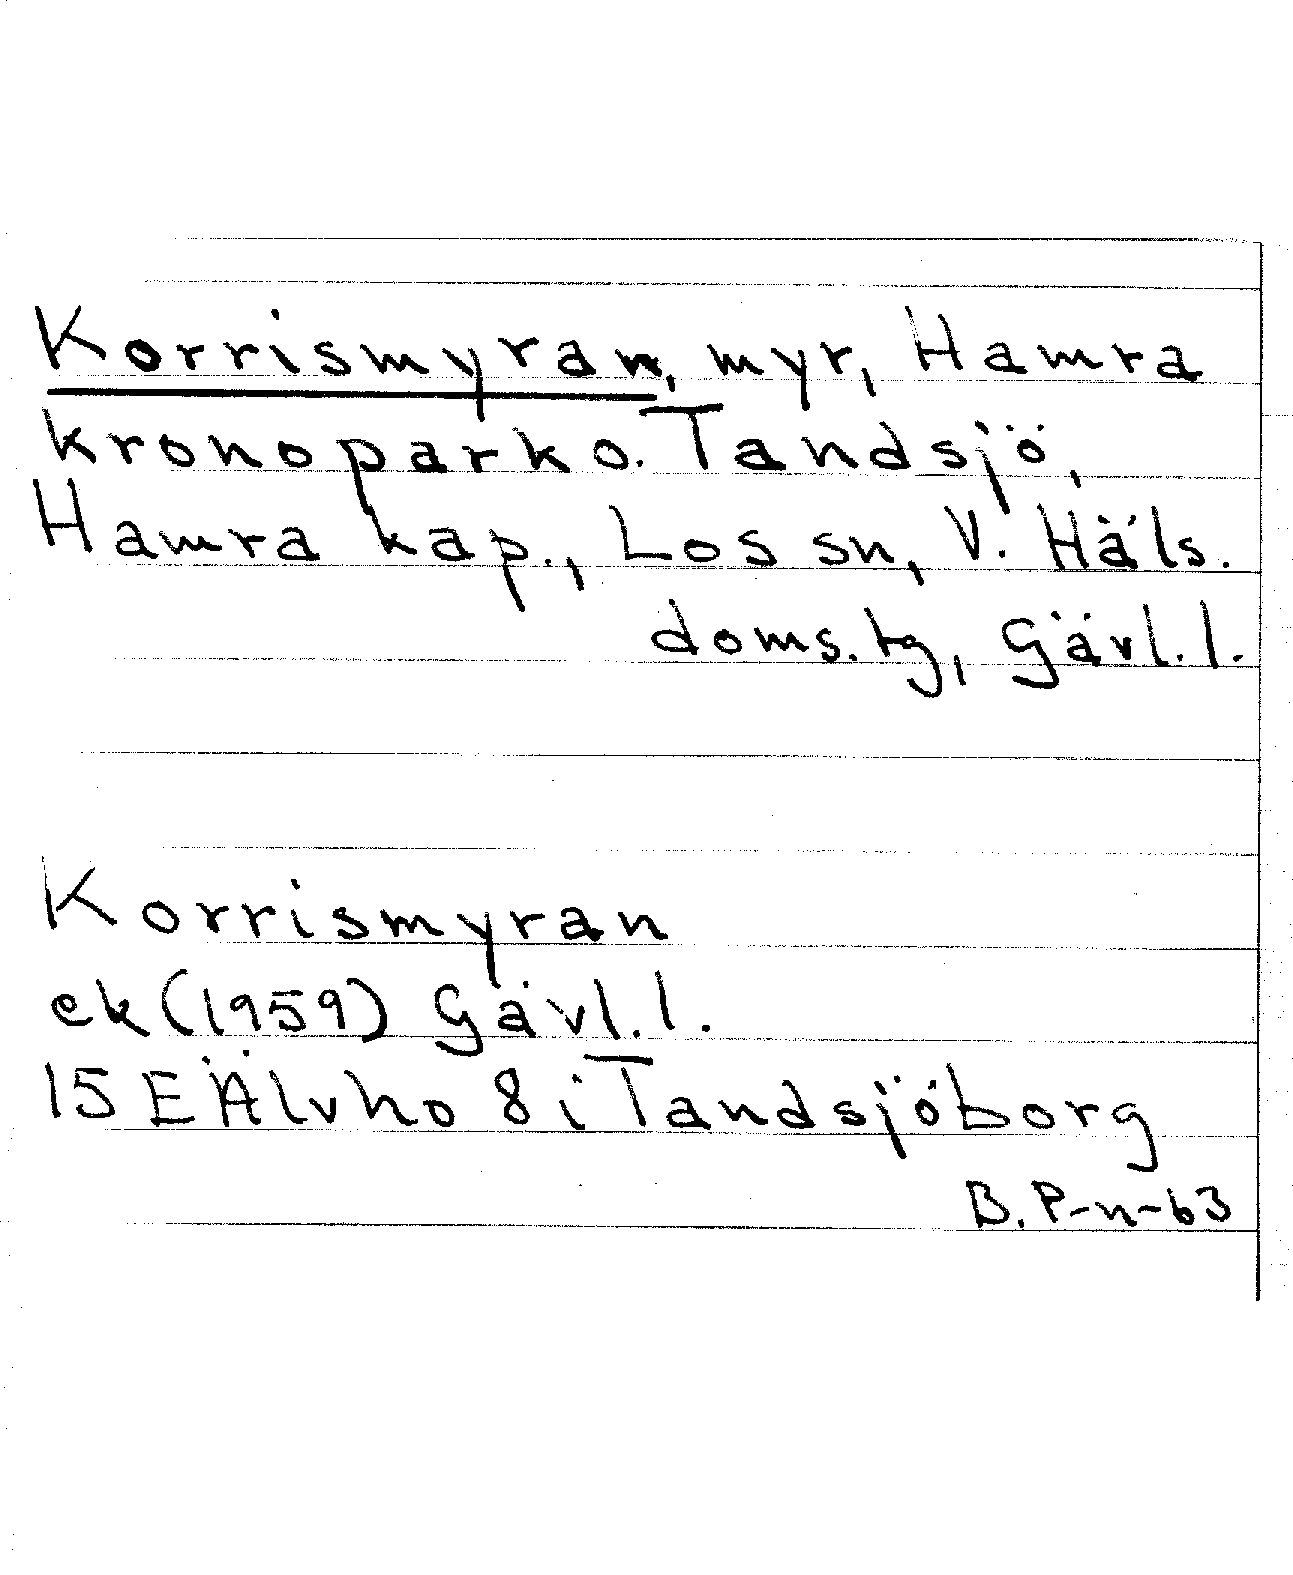 Korrismyran, myr, Hamra
kronopark o. Tandsjö,
Hamra kap., Los sn, V. Häls.
doms.tg, Gävl.l.
Korrismyran
ek (1959) Gävl.l.
15 E Älvho 8 i Tandsjöborg
B. P-n-63